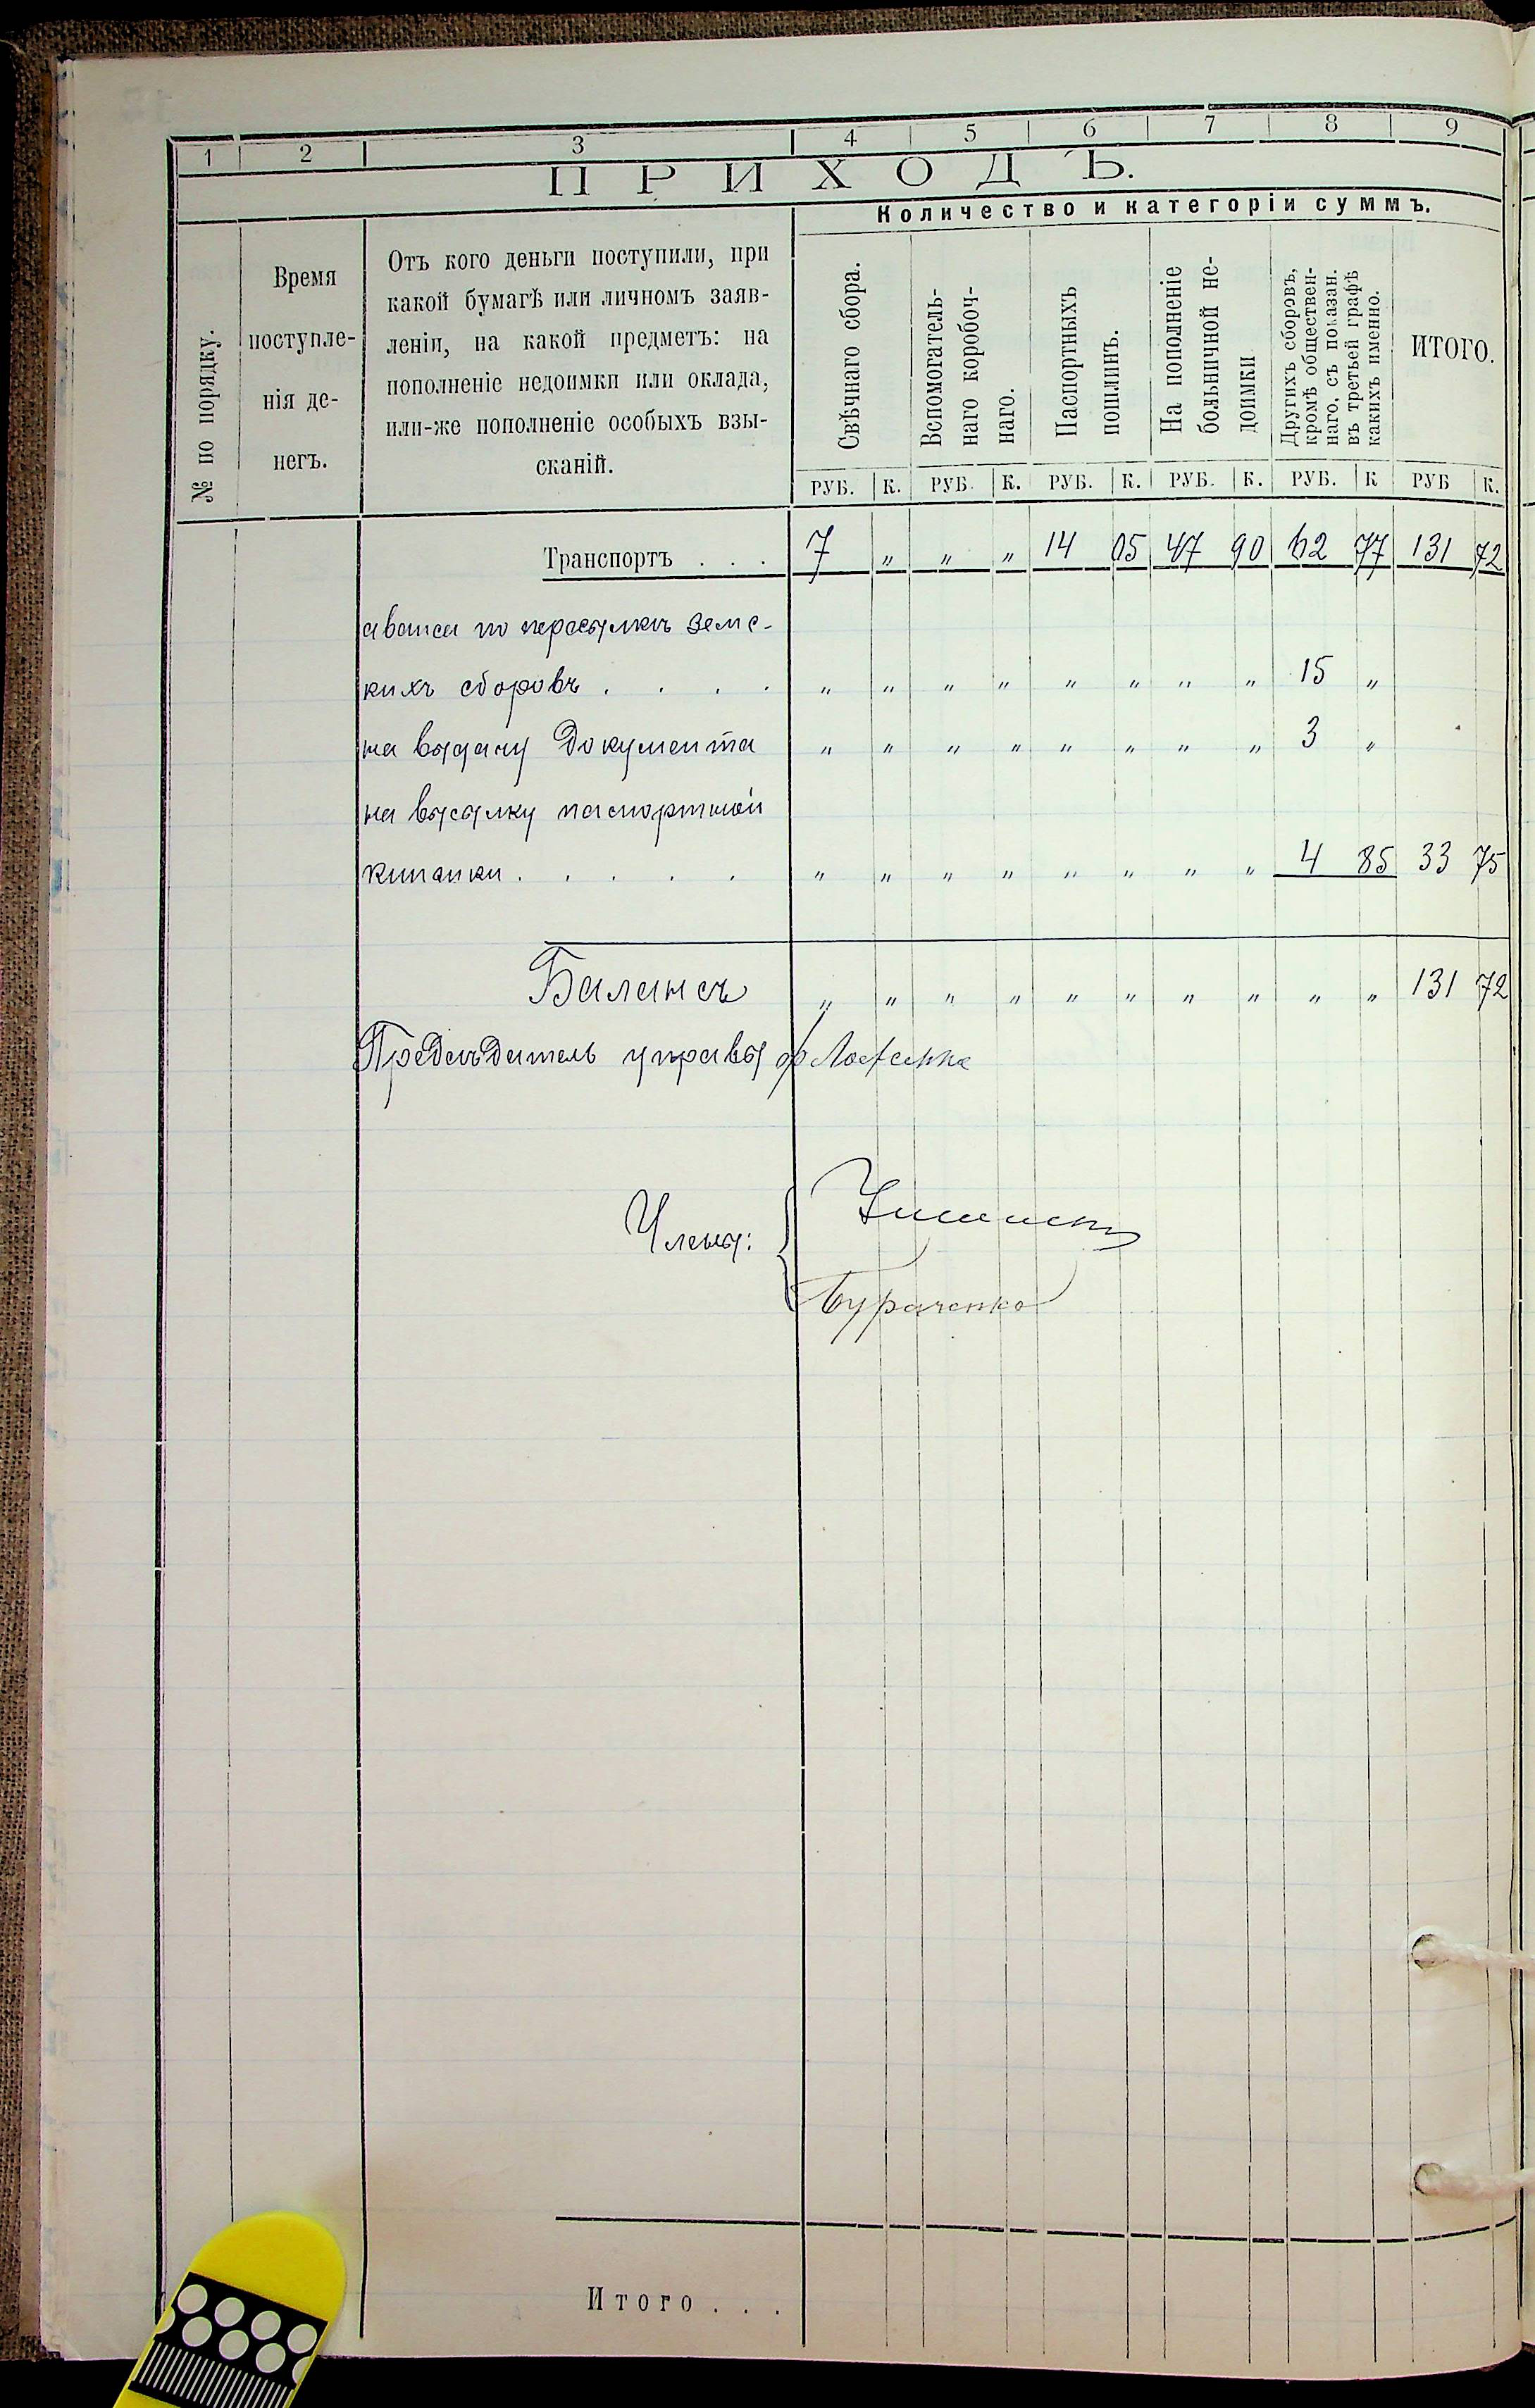 1 2 3 4 5 6 7 8 9
ПРИХОДЪ.
Количество и категоріи суммъ.
№ по порядку.
Время
поступле-
нія де-
негъ.
Отъ кого деньги поступили, при
какой бумагѣ или личномъ заяв-
леніи, на какой предметъ: на
пополненіе недоимки или оклада,
или-же пополненіе особыхъ взы-
сканій.
Свѣчнаго сбора.
Вспомогатель-
наго коробоч-
наго.
Паспортныхъ
пошлинъ.
На пополненіе
больничной не-
доимки
Другихъ сборовъ,
кромѣ обществен-
наго, съ показан.
въ третьей графѣ
какихъ именно.
ИТОГО.
РУБ. К. РУБ. К. РУБ. К. РУБ. К. РУБ. К РУБ К.
Транспортъ . . . 7 „ „ „ 14 05 47 90 62 77 131 72
аванса по пересылкѣ земс-
кихъ сборовъ . . . . „ „ „ „ „ „ „ „ 15 „
на выдачу документа „ „ „ „ „ „ „ „ 3 „
на высылку паспортной
книжки . . . . . „ „ „ „ „ „ „ „ 4 85 33 75
Балансъ „ „ „ „ „ „ „ „ „ „ 131 72
Предсѣдатель управы
Члены:
Бураченко
Итого . . .